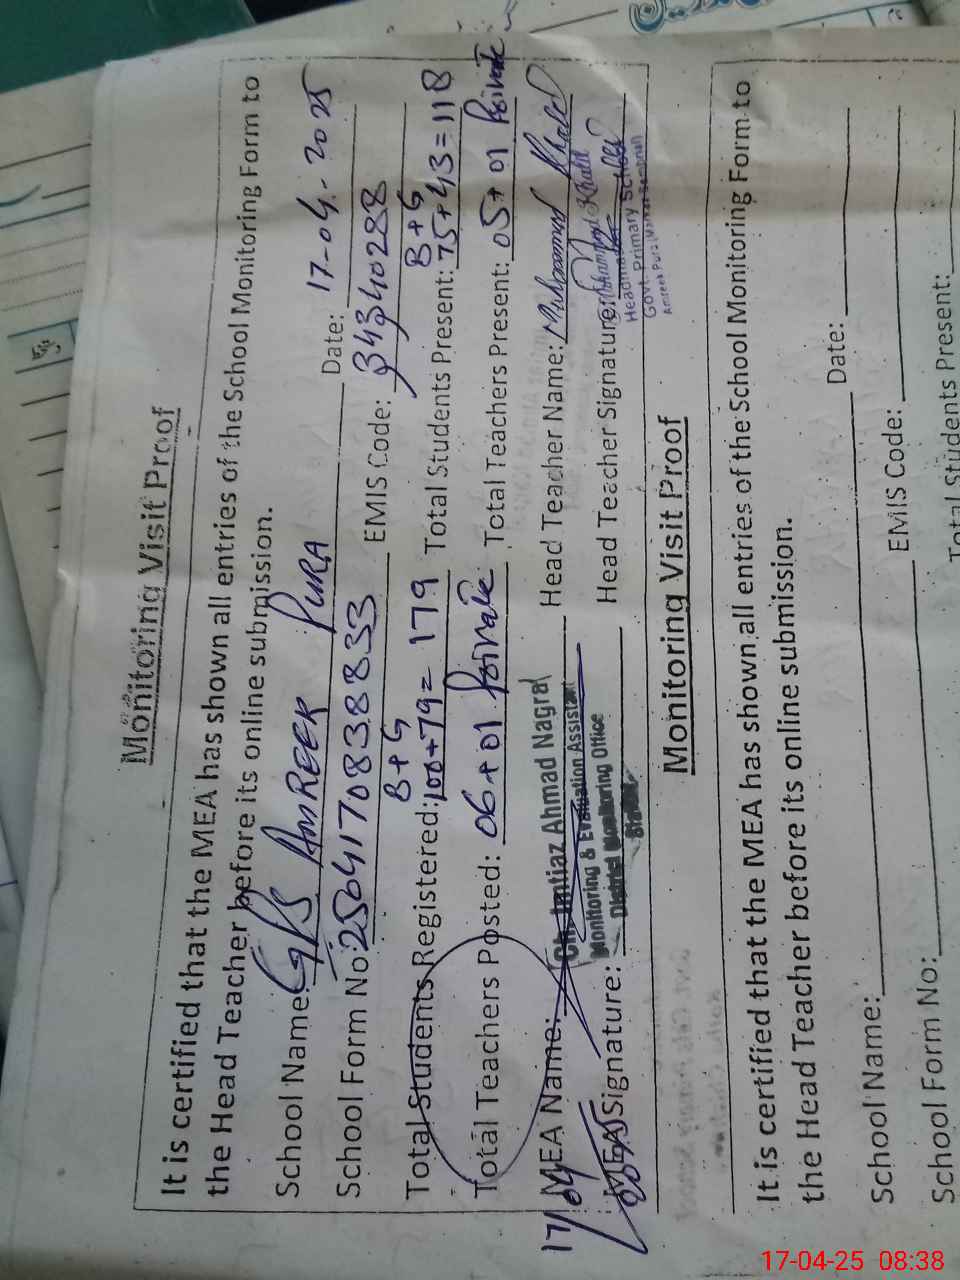 Monitoring Visit Proof
It is certified that the MEA has shown all entries of the School Monitoring Form to
the Head Teacher before its online submission.
School Name: GPS AMREEK PURA Date: 17-04-2025
School Form No: 2504170838833 EMIS Code: 34340288
B+G B+G
Total Students Registered: 100+79= 179 Total Students Present: 75+43=118
Total Teachers Posted: 06+01 Private Total Teachers Present: 05+01 Private
MEA Name: Ch. Imtiaz Ahmad Nagra Head Teacher Name: Muhammad Khalid
Monitoring & Evaluation Assistant
District Monitoring Office
MEA Signature: Head Teacher Signature: Muhammad Khalid
Headmaster
Govt. Primary School
Amreek Pura
17/04
2025
Monitoring Visit Proof
It is certified that the MEA has shown all entries of the School Monitoring Form to
the Head Teacher before its online submission.
School Name: Date:
School Form No: EMIS Code:
Total Students Present:
17-04-25 08:38